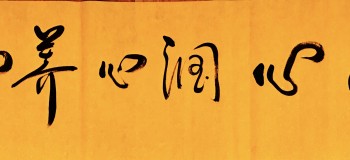 养心润心